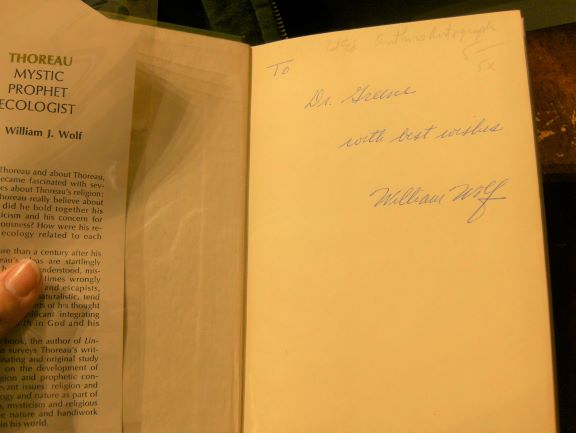 THOREAU
MYSTIC
PROPHET
ECOLOGIST
William J. Wolf
Thoreau and about Thoreau,
ecame fascinated with sev-
es about Thoreau's religion:
Thoreau really believe about
did he hold together his
icism and his concern for
ousness? How were his re-
ecology related to each
ore than a century after his
eau's ideas are startlingly
understood, mis-
times wrongly
and escapists,
naturalistic, tend
nts of his thought
nificant integrating
faith in God and his
book, the author of Lin-
surveys Thoreau's writ-
inating and original study
on the development of
igion and prophetic con-
evant issues: religion and
ogy and nature as part of
, mysticism and religious
e nature and handiwork
in his world.
Author's Autograph
5x
To
Dr. Greene
with best wishes
William Wolf